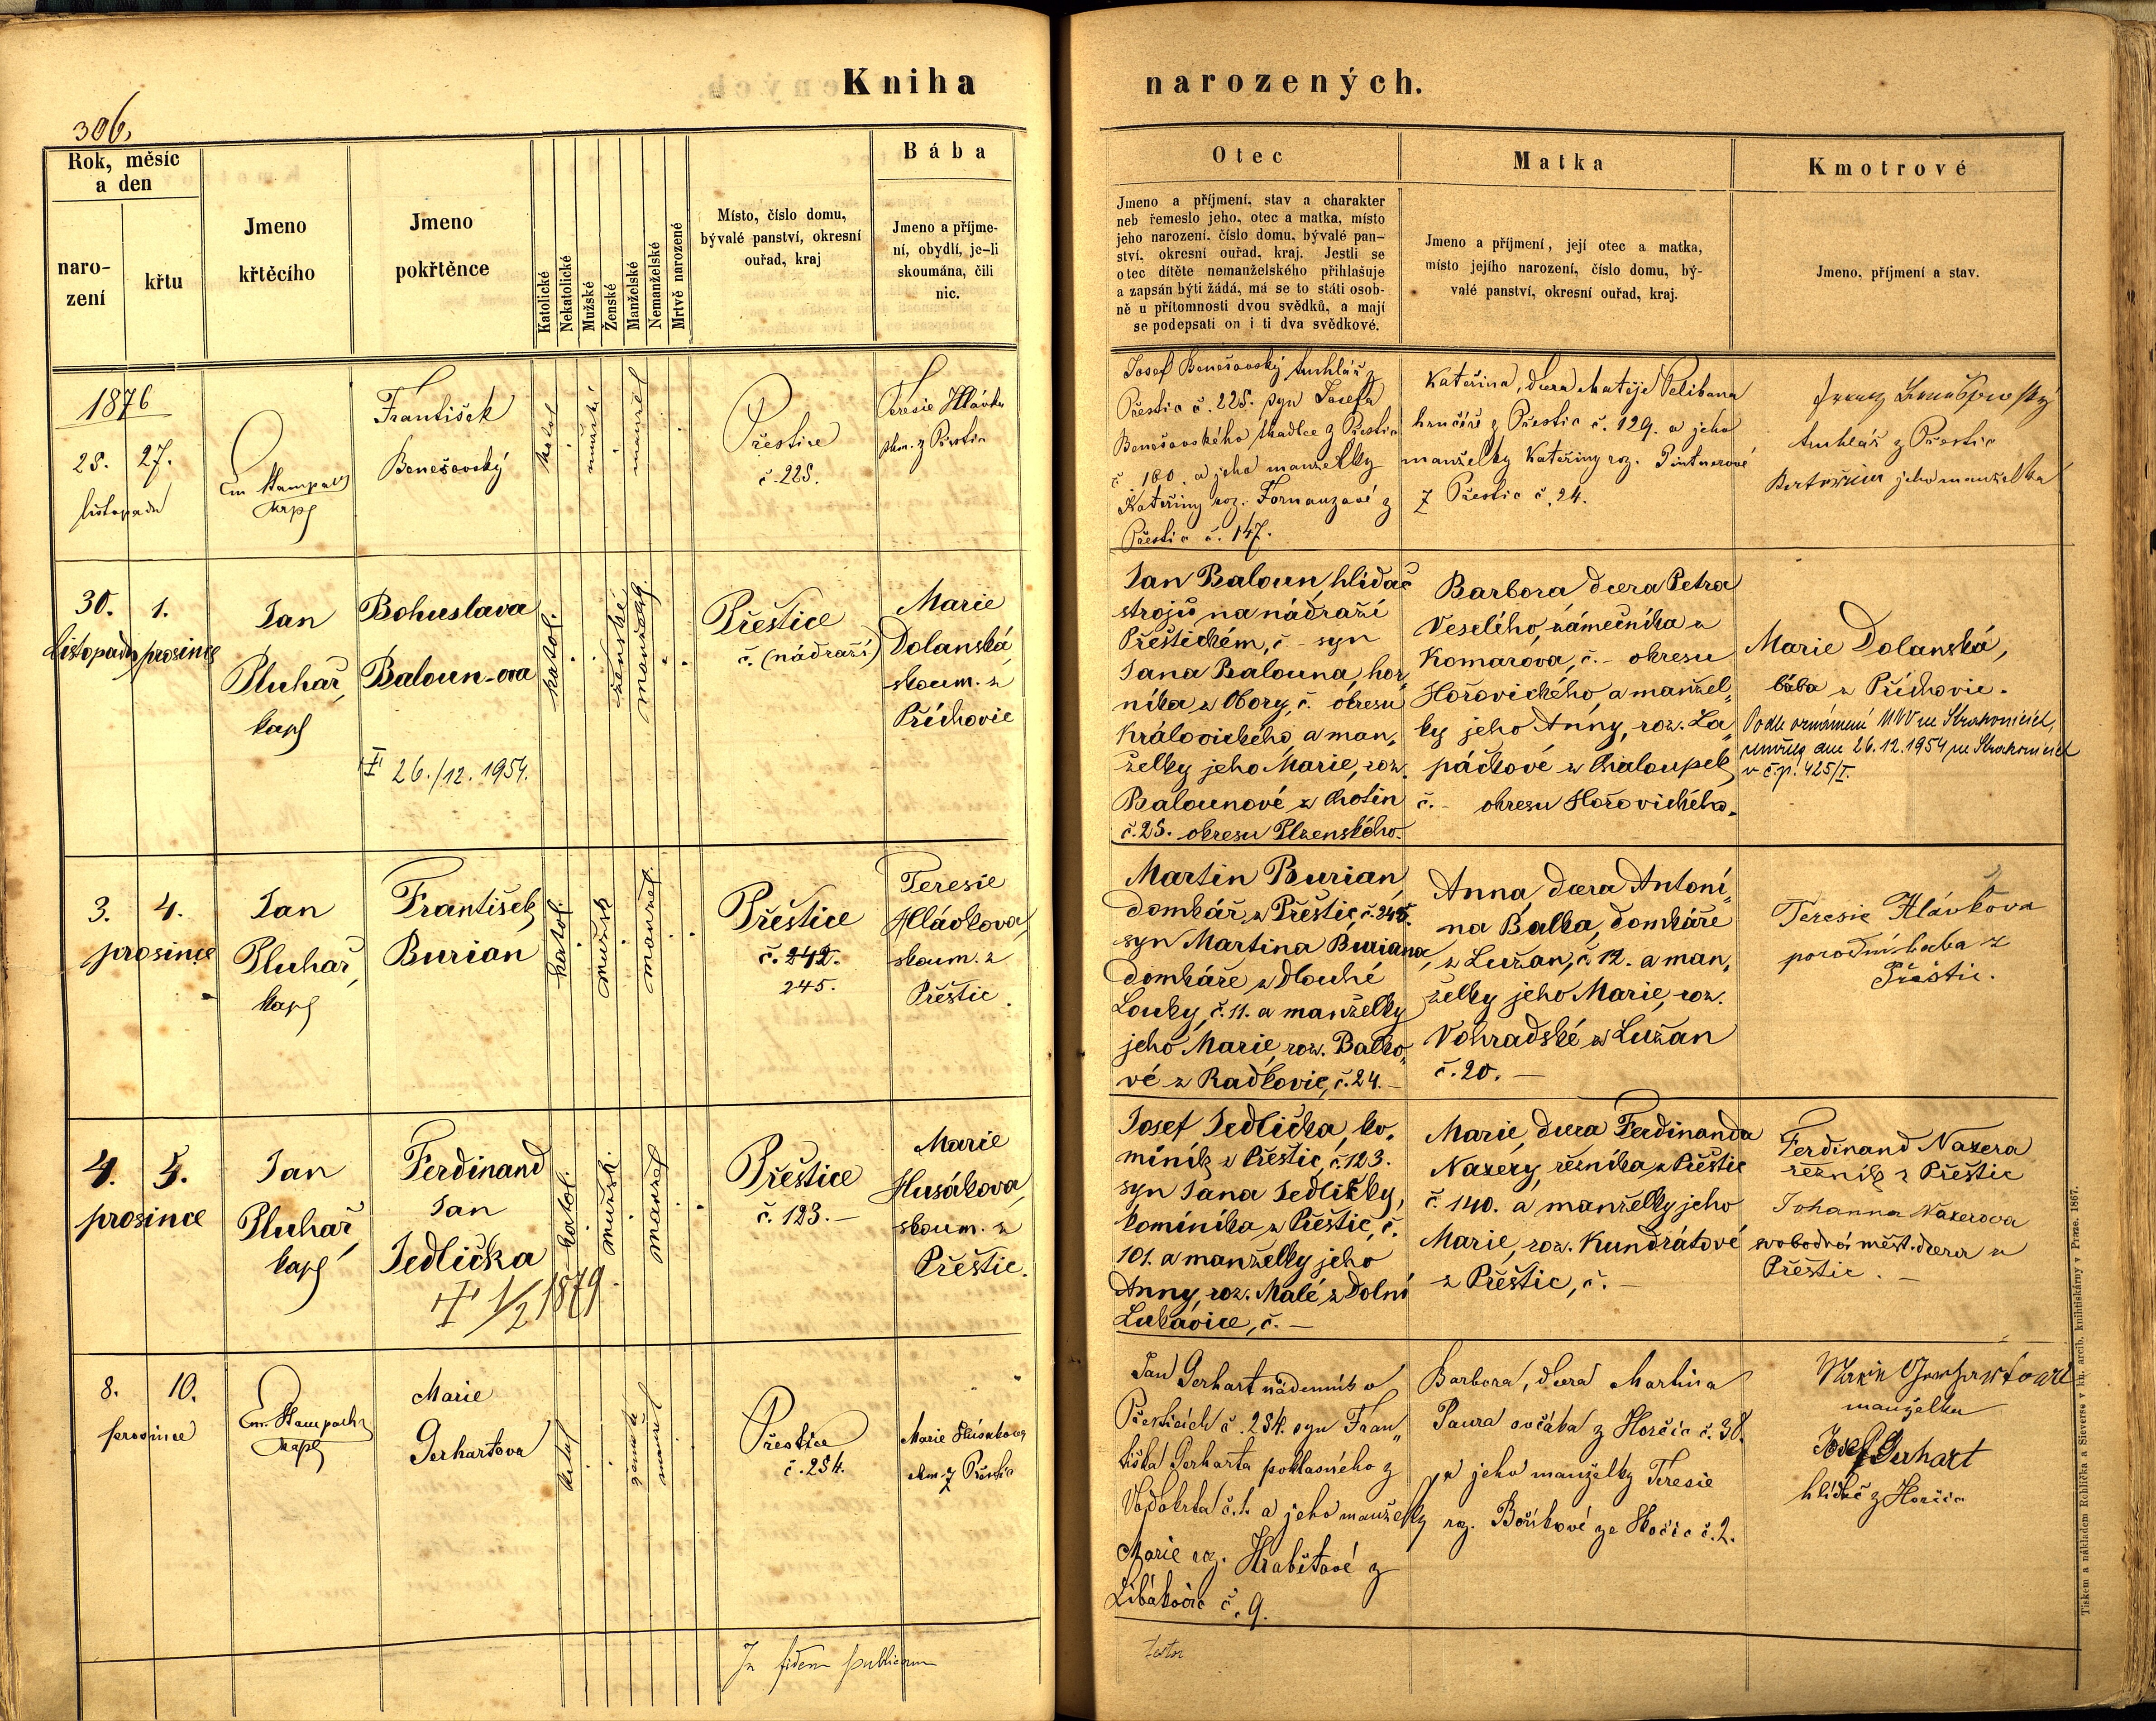 Kniha
narozených.
306.
Rok, měsíc
a den
naro-
zení
křtu
Jmeno
křtěcího
Jmeno
pokřtěnce
Katolické
Nekatolické
Mužské
Ženské
Manželské
Nemanželské
Mrtvě narozené
Místo, číslo domu,
bývalé panství, okresní
ouřad, kraj
Bába
Jmeno a příjme-
ní, obydlí, je-li
skoumána, čili
nic.
Otec
Jmeno a příjmení, stav a charakter
neb řemeslo jeho, otec a matka, místo
jeho narození, číslo domu, bývalé pan-
ství, okresní ouřad, kraj. Jestli se
otec dítěte nemanželského přihlašuje
a zapsán býti žádá, má se to státi osob-
ně u přítomnosti dvou svědků, a mají
se podepsati on i ti dva svědkové.
Matka
Jmeno a příjmení, její otec a matka,
místo jejího narození, číslo domu, bý-
valé panství, okresní ouřad, kraj.
Kmotrové
Jmeno, příjmení a stav.
1876
25. 27.
listopadu
Em Stampach
kapl
František
Benešovský
katol
mužské
manžel
Přestice
č. 225.
Teresie Hlávka
skm. z Přestic
Josef Benešovský truhlář z
Přestic č. 225. syn Josefa
Benešovského tkadlce z Přestic
č. 160. a jeho manželky
Kateřiny roz. Fornauzové z
Přestic č. 147.
Kateřina, dcera Matěje Pelibana
hrnčíře z Přestic č. 129. a jeho
manželky Kateřiny roz. Pintnerové
z Přestic č. 24.
truhlář z Přestic
jeho manželka
30. 1.
listopadu prosince
Jan
Pluhař,
kapl
Bohuslava
Baloun-ova
✝ 26./12. 1954.
katol.
ženské
manžel.
Přeštice
č. (nádraží)
Marie
Dolanská,
skoum. z
Příchovic
Jan Baloun, hlídač
strojů na nádraží
Přeštickém, č – syn
Jana Balouna, hor„
níka z Obory, č. okresu
Královického, a man„
želky jeho Marie, roz.
Balounové z Chotin
č. 25. okresu Plzenského.
Barbora, dcera Petra
Veselého, zámečníka z
Komárova, č. – okresu
Hořovického, a manžel„
ky jeho Anny, roz. La„
páčkové z Chaloupek
č. – okresu Hořovického.
Marie Dolanská,
bába z Příchovic.
Podle oznámení MNV ve Strakonicích,
zemřela dne 26.12.1954 ve Strakonicích
v č.p. 425/I.
3. 4.
prosince
Jan
Pluhař,
kapl
František
Burian
katol.
mužsk
manžel
Přeštice
č. 242.
245.
Teresie
Hlávkova,
skoum. z
Přeštic.
Martin Burian,
domkář z Přeštic, č. 245.
syn Martina Buriana,
domkáře z Dlouhé
Louky, č. 11. a manželky
jeho Marie, roz. Balko„
vé z Radkovic, č. 24. –
Anna, dcera Antoní„
na Balka, domkáře
z Lužan, č. 12. a man„
želky jeho Marie, roz.
Vohradské z Lužan
č. 20. –
Teresie Hlávkova
porodní baba z
Přeštic.
4. 5.
prosince
Jan
Pluhař,
kapl
Ferdinand
Jan
Jedlička
✝ 1/2 1879.
katol.
mužsk.
manžel
Přeštice
č. 123. –
Marie
Husákova,
skoum. z
Přeštic.
Josef Jedlička, ko„
miník z Přeštic, č. 123.
syn Jana Jedličky,
kominíka z Přeštic, č.
101. a manželky jeho
Anny, roz. Malé, z Dolní
Lukavice, č. –
Marie, dcera Ferdinanda
Naxery, řezníka z Přeštic
č. 140. a manželky jeho
Marie, roz. Kundrátové
z Přeštic, č. –
Ferdinand Naxera
řezník z Přeštic
Johanna Naxerova
svobodná měšt. dcera z
Přeštic. –
8. 10.
prosince
Em. Stampach
kapl
Marie
Gerhartova
katol
ženské
manžel
Přestice
č. 254.
Marie Husákova
skm. z Přestic
Jan Gerhart nádenník v
Přesticích č. 254. syn Fran„
tiška Gerharta poklasného z
Vodokrt č. 1. a jeho manželky
Marie roz. Hrabětové z
Libákovic č. 9.
Barbora, dcera Martina
Paura ovčáka z Horčic č. 38.
a jeho manželky Teresie
roz. Boříkové ze Skočic č. 2.
manželka
Josef Gerhart
hlídač z Horčic
In fidem publicam
Tiskem a nákladem Rohlíčka a Sieverse v kn. arcib. knihtiskárny v Praze. 1867.